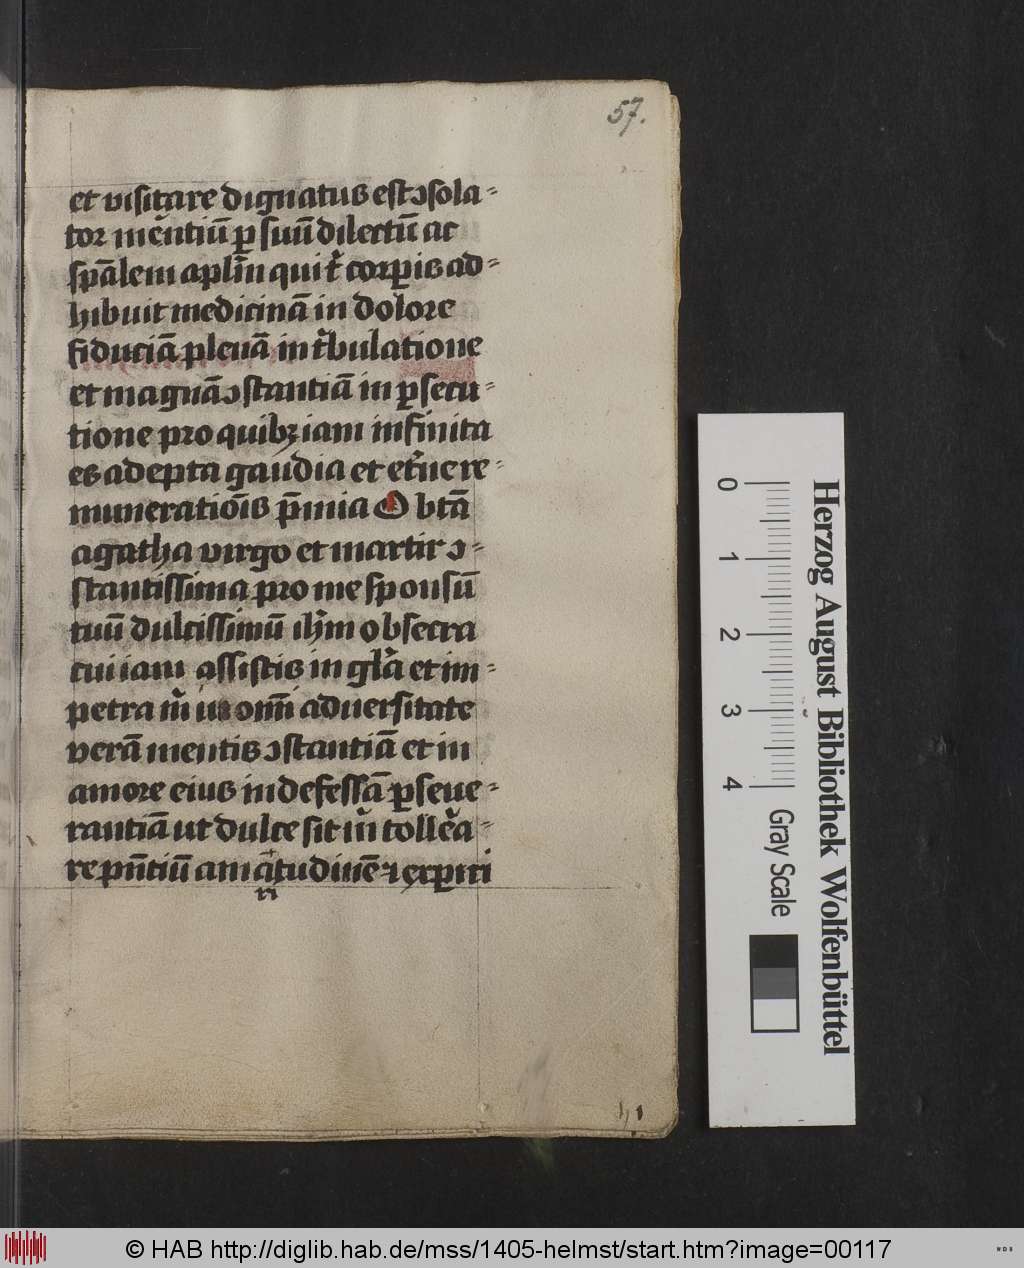 57.
et visitare dignatus est ↄsola⸗
tor me͛ntiū ꝑ suū dilectū ac
sp̄alem apl̄m qui t͛ corꝑis ad⸗
hibuit medicinā in dolore
fiduciā plenā in t͛bulatione
et magnā ↄstantiā in ꝑsecu⸗
tione pro quibꝫ iam infinita
es adepta gaudia et et͛ne re⸗
muneratiōis p̄mia O btā
agatha virgo et martir ↄ⸗
stantissima pro me sponsū
tuū dulcissimū ih̄m obsecra
cui iam assistis in gl̄a et im⸗
petra m̄ in om̄i aduersitate
verā mentis ↄstantiā et in
amore eius indefessā ꝑseue⸗
rantiā ut dulce sit m̄ toll͛a⸗
re pn̄tiū amātudinē ⁊ exꝑiri
ri
h 1
0 1 2 3 4
Gray Scale
Herzog August Bibliothek Wolfenbüttel
© HAB http://diglib.hab.de/mss/1405-helmst/start.htm?image=00117
WDB